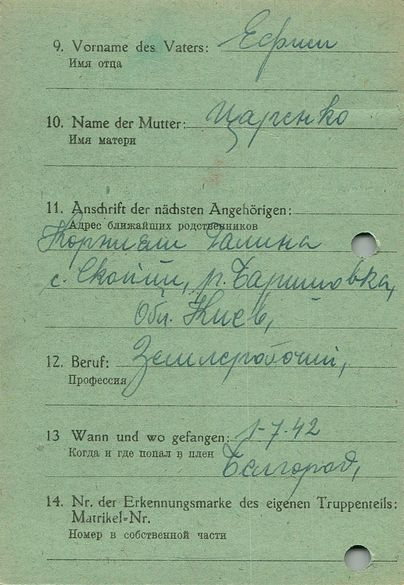 9. Vorname des Vaters: Ефрим
Имя отца
10. Name der Mutter: Царенко
Имя матери
11. Anschrift der nächsten Angehörigen:
Адрес ближайших родственников
Галина
с. Скопцы, р. Баришовка,
Обл. Киев,
12. Beruf: Землерабочий,
Профессия
13 Wann und wo gefangen: 1-7-42
Когда и где попал в плен
Белгород,
14. Nr. der Erkennungsmarke des eigenen Truppenteils:
Matrikel-Nr.
Номер в собственной части